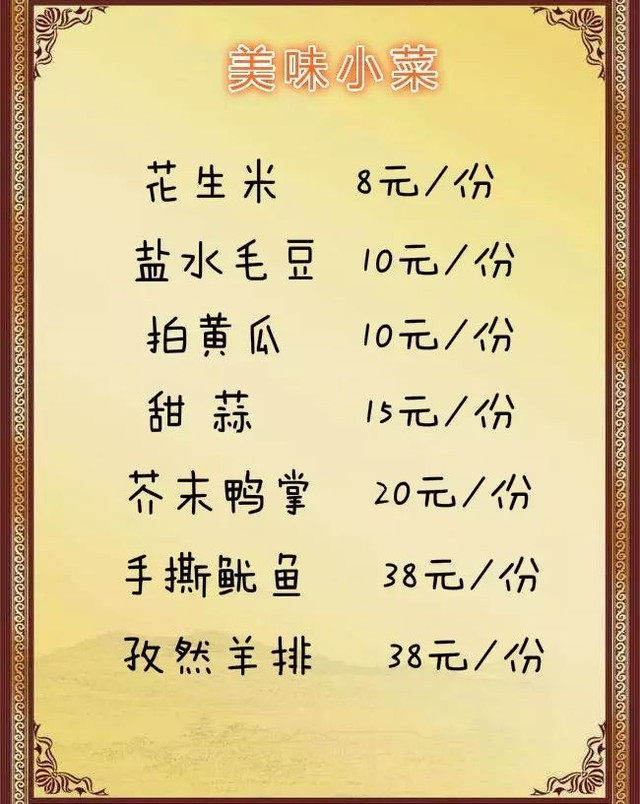 美味小菜
花生米 8元/份
盐水毛豆 10元/份
拍黄瓜 10元/份
甜蒜 15元/份
芥末鸭掌 20元/份
手撕鱿鱼 38元/份
孜然羊排 38元/份